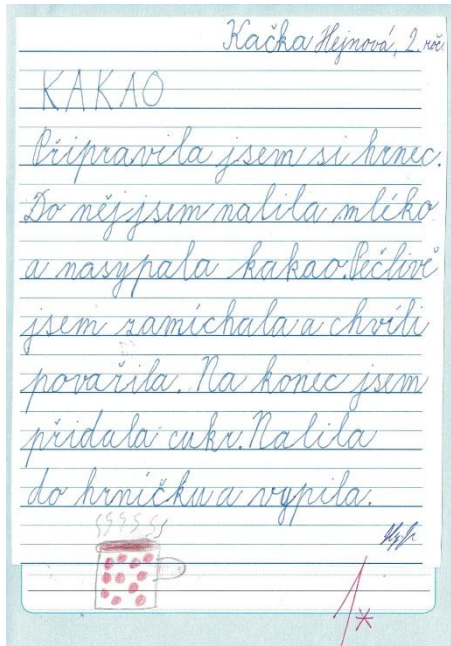 Kačka Hejnová, 2. roč.
KAKAO
Připravila jsem si hrnec.
Do něj jsem nalila mléko
a nasypala kakao. Pečlivě
jsem zamíchala a chvíli
povařila. Na konec jsem
přidala cukr. Nalila
do hrníčku a vypila.
1*